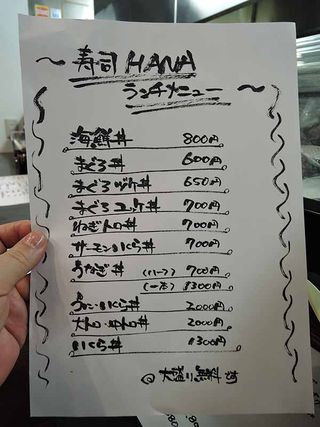 ～寿司 HANA
ランチメニュー～
海鮮丼 800円
まぐろ丼 600円
まぐろづけ丼 650円
まぐろユッケ丼 700円
ねぎトロ丼 700円
サーモンいくら丼 700円
うなぎ丼 (ハーフ) 700円
(一本) 1300円
うに・いくら丼 2000円
大トロ・中トロ丼 2000円
いくら丼 1300円
大盛り無料